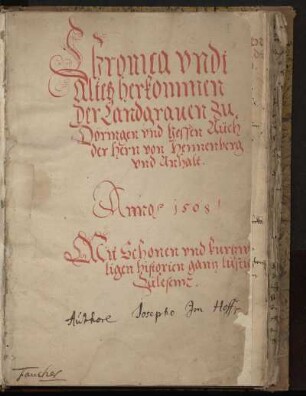 Chronica vndt
Altes herkommen
Der Landgrauen Zu
Döringen vnd Hessen Auch
der Hern von Hennenberg
vnd Anhalt.
Anno 1508
Mit Schonen vnd kurtzw
ligen historien gantz lustig
Zulesenn.
Authore Josepho Im Hoff